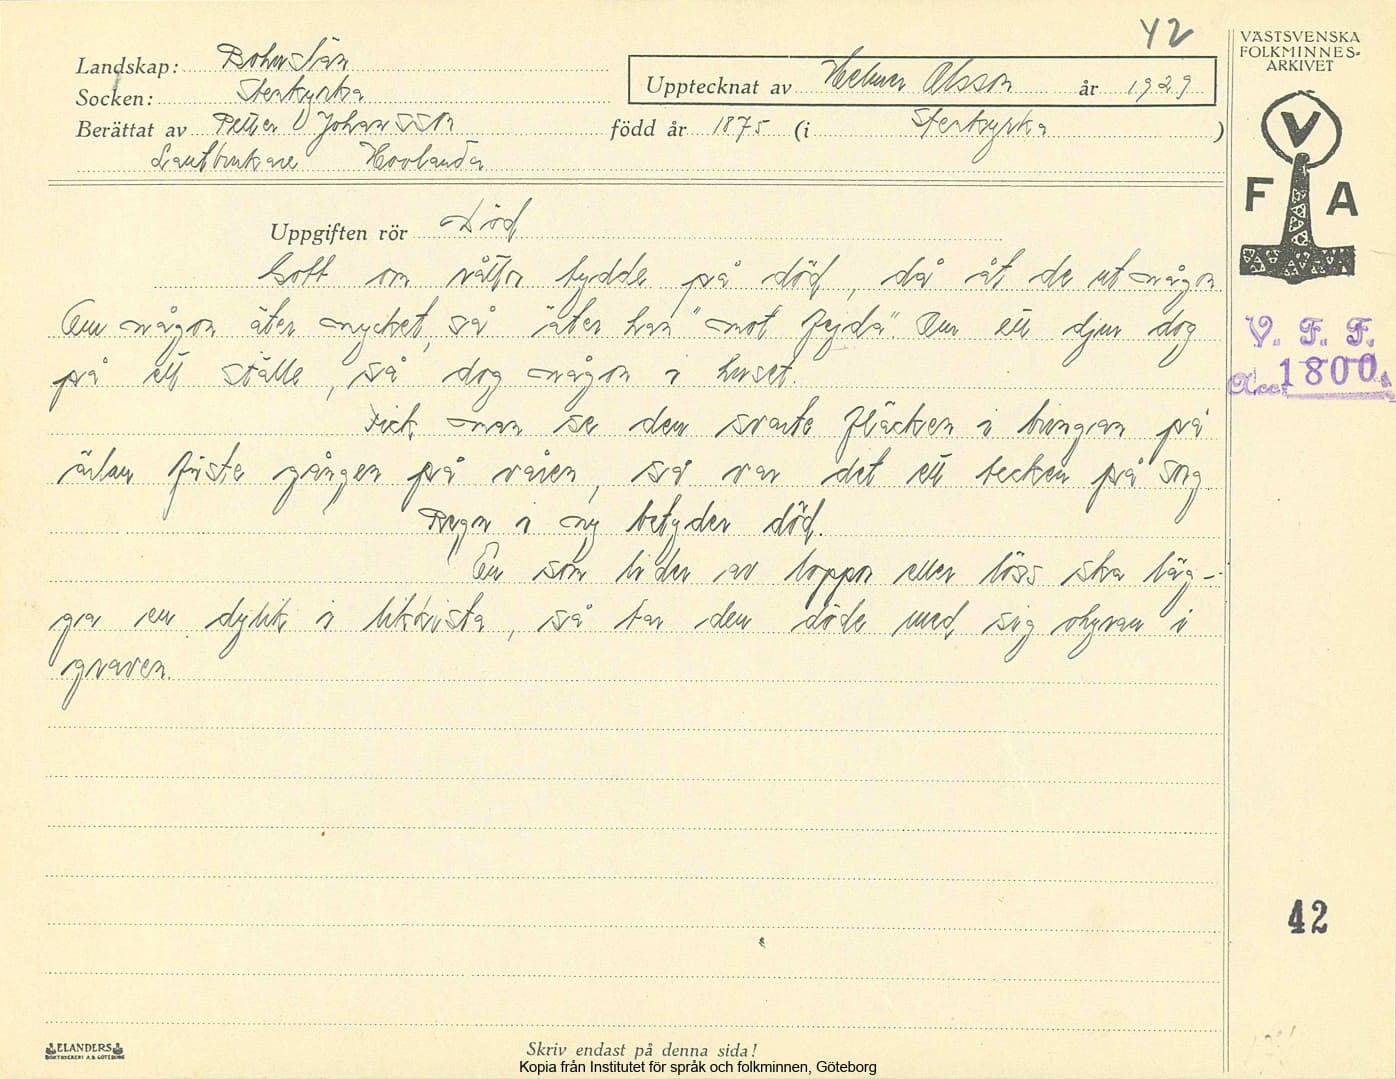 42
VÄSTSVENSKA
FOLKMINNES-
ARKIVET
Landskap: Bohuslän
Socken: Stenkyrka
Upptecknat av Helmer Olsson år 1929
Berättat av Petter Johansson född år 1875 (i Stenkyrka )
Lantbrukare Hovlanda
V
F A
Uppgiften rör Död
Gott om råttor tydde på död, då åt de ut någon
Om någon äter mycket, så äter han "mot fejda". Om ett djur dog
på ett ställe, så dog någon i huset.
Fick man se den svarte fläcken i bringan på
ärlan förste gången på våren, så var det ett tecken på sorg
Regn i ny betyder död.
En som lider av loppor eller löss ska läg-
ga en dylik i likkista, så tar den döde med sig ohyran i
graven.
V. F. F.
Acc. 1800
42
ELANDERS
BOKTRYCKERI A.B. GÖTEBORG
Skriv endast på denna sida!
Kopia från Institutet för språk och folkminnen, Göteborg